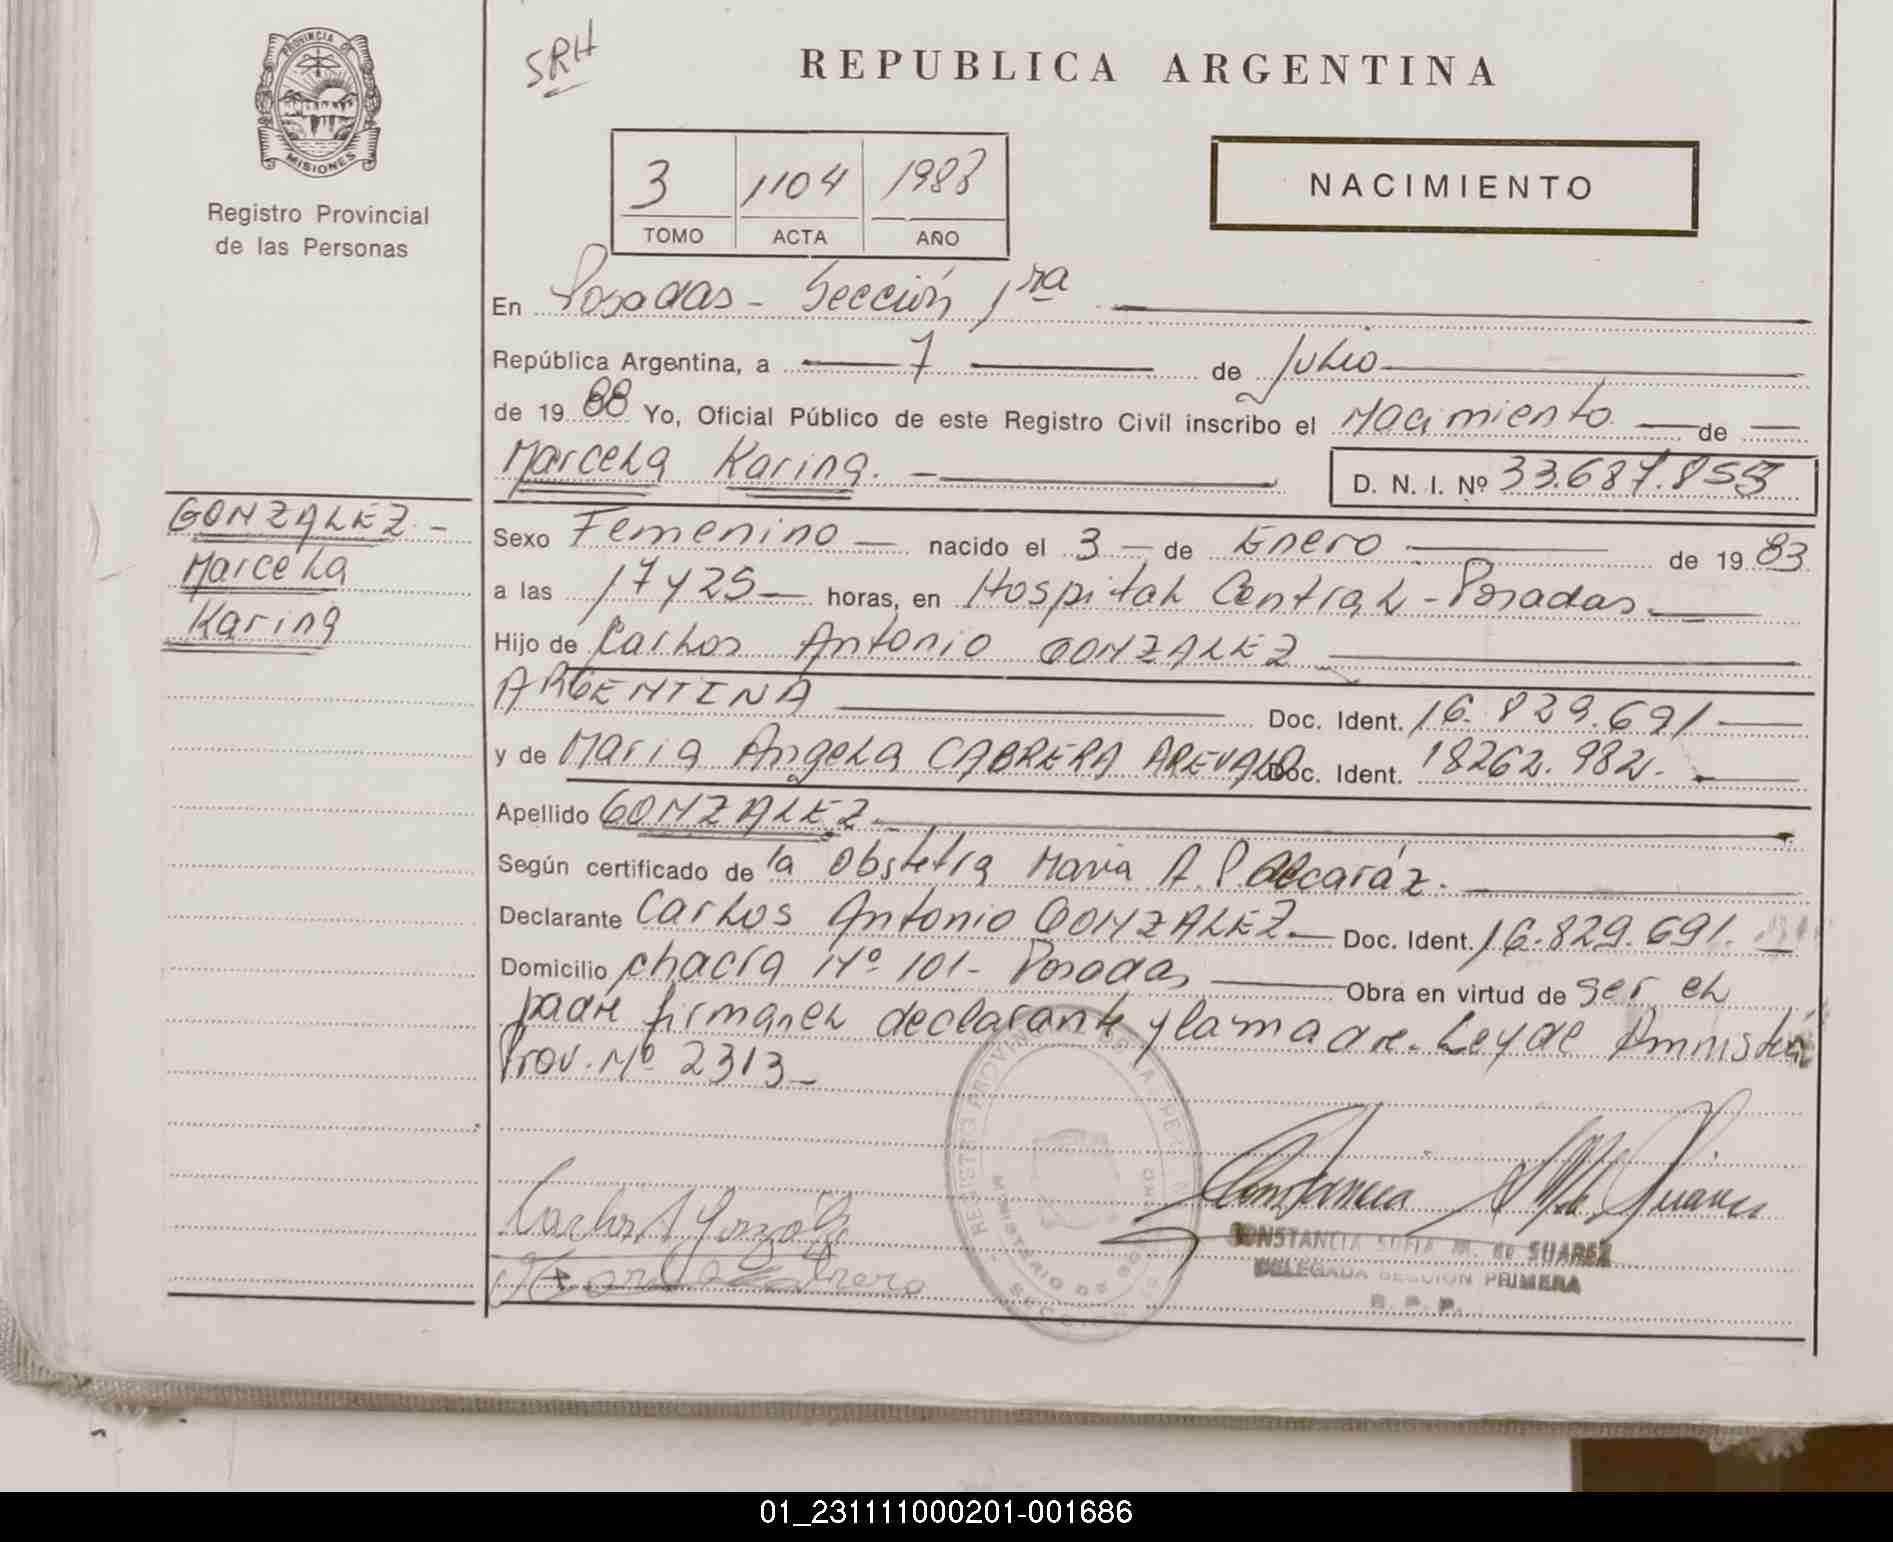 PROVINCIA DE
MISIONES
Registro Provincial
de las Personas
SRH
REPUBLICA ARGENTINA
3 1104 1988
TOMO ACTA AÑO
NACIMIENTO
En Posadas - Sección 1ra
República Argentina, a 7 de Julio
de 19 88 Yo, Oficial Público de este Registro Civil inscribo el Nacimiento de
Marcela Karina. D. N. I. Nº 33.687.855
GONZALEZ -
Marcela
Karina
Sexo Femenino nacido el 3 de Enero de 19 83
a las 17 y 25 horas, en Hospital Central - Posadas
Hijo de Carlos Antonio GONZALEZ
ARGENTINA Doc. Ident. 16.829.691
y de Maria Angela CABRERA AREVALO Doc. Ident. 18262.982.
Apellido GONZALEZ
Según certificado de la Obstetra Maria A. P. Alcaráz.
Declarante Carlos Antonio GONZALEZ Doc. Ident. 16.829.691.
Domicilio chacra Nº 101 - Posadas Obra en virtud de ser el
padre firman el declarante y la madre. Ley de Amnistía
Prov. Nº 2313 -
Carlos A Gonzalez
Cabrera
Constancia S M de Suarez
CONSTANCIA SOFIA M. de SUAREZ
DELEGADA SECCION PRIMERA
R. P. P.
01_231111000201-001686